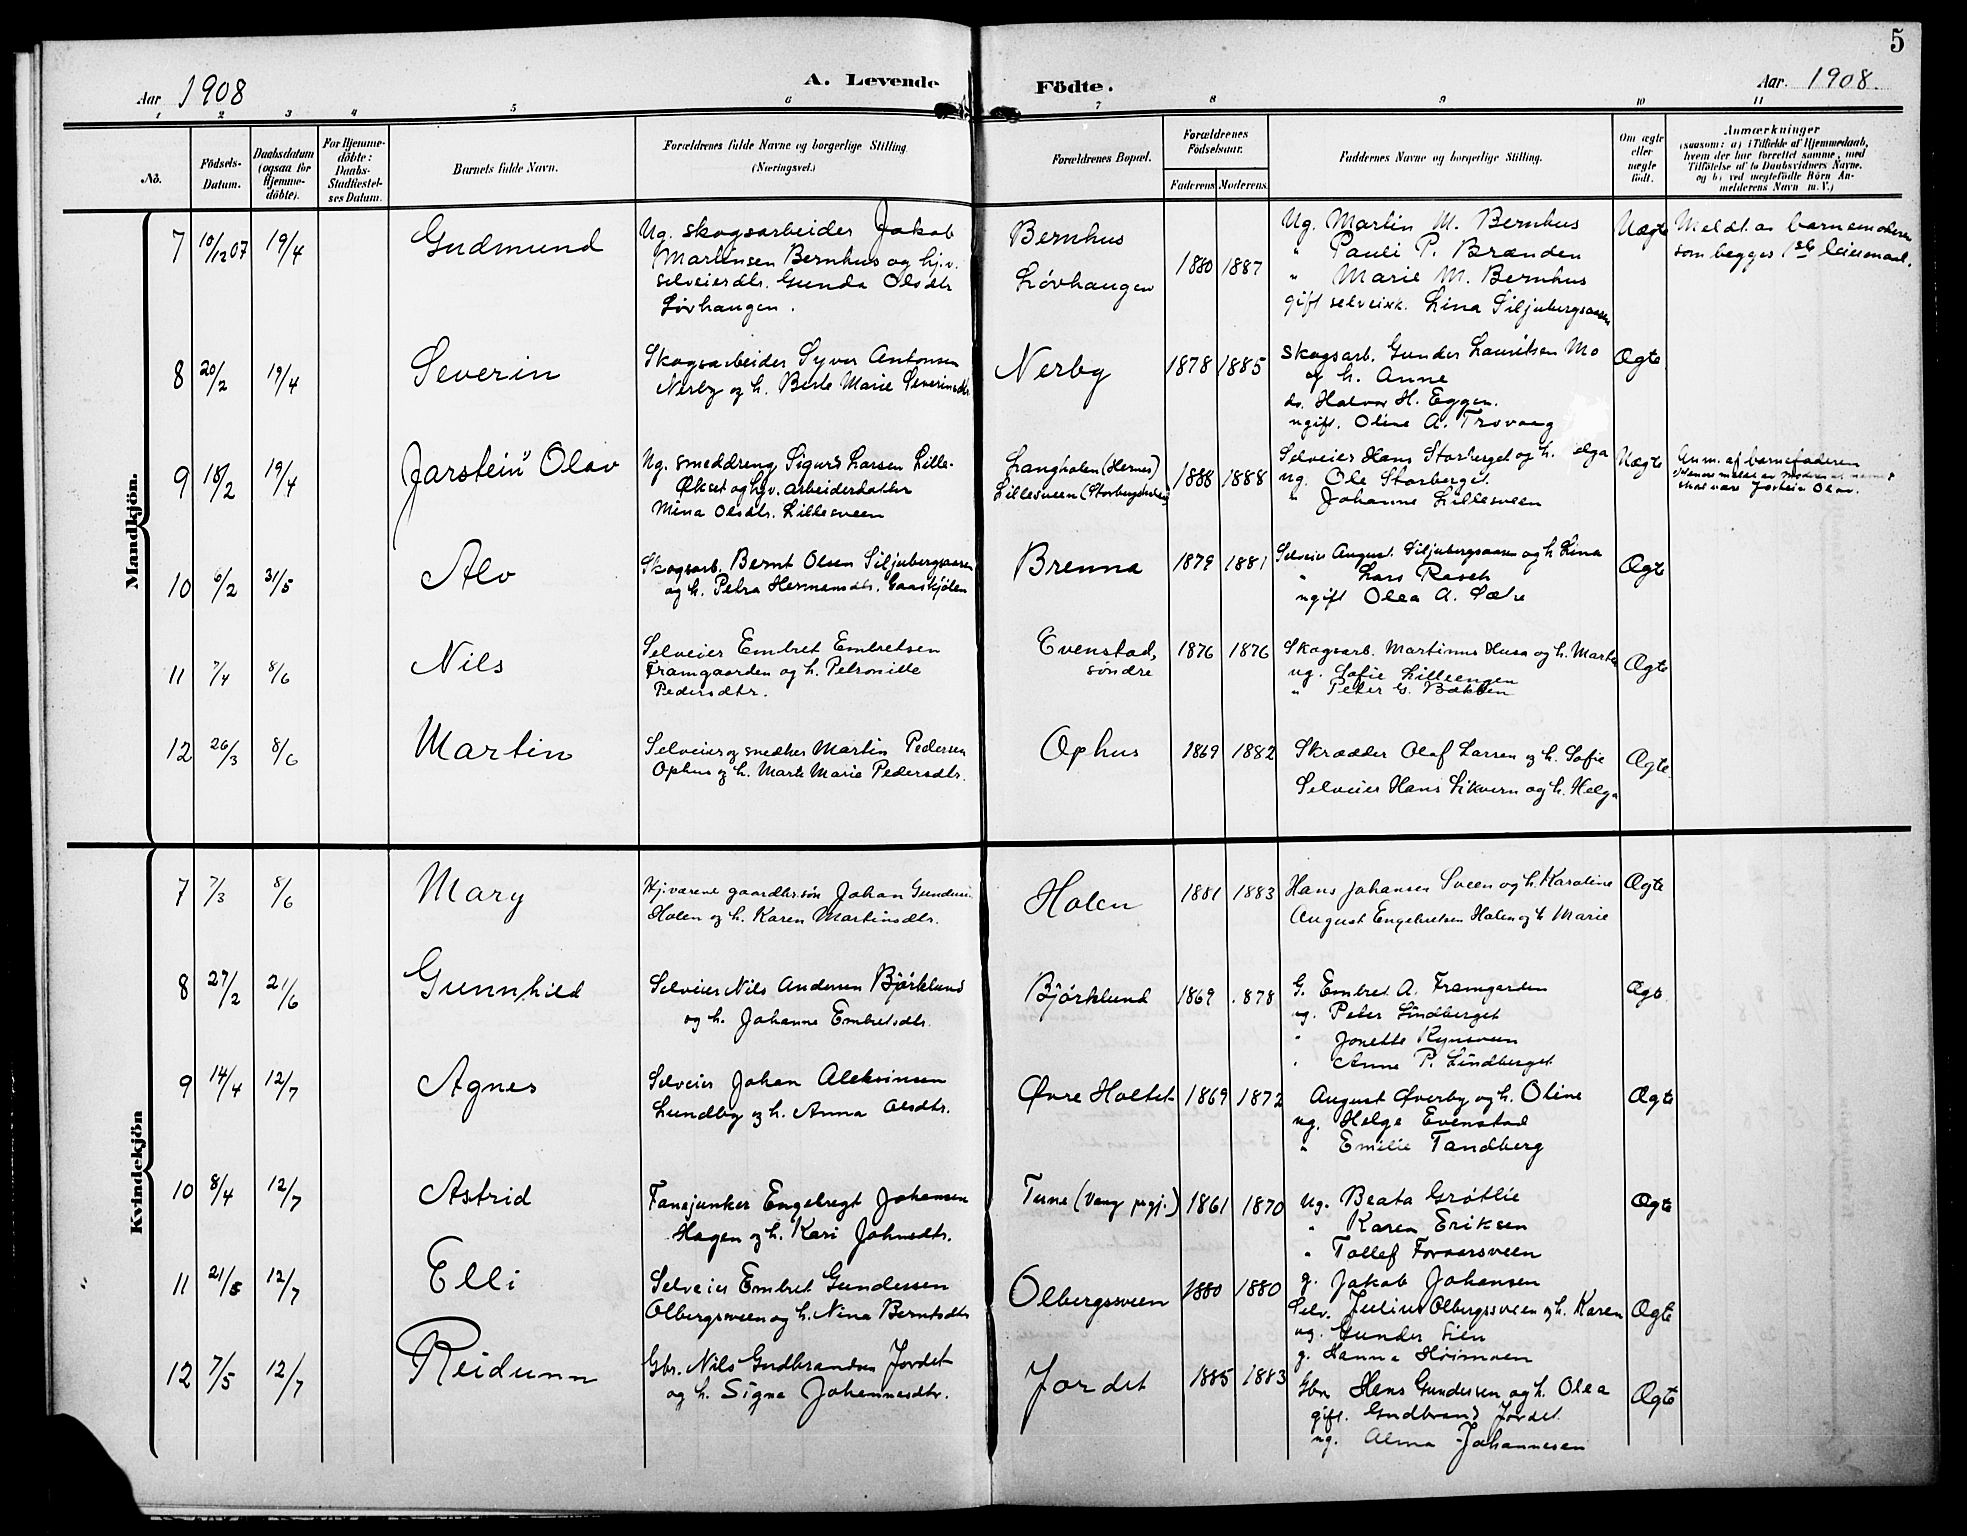 5
Aar 1908
A. Levende
Födte.
Aar. 1908.
1 2 3 4 5 6 7 8 9 10 11
No.
Födsels-
Datum.
Daabsdatum
(ogsaa for
Hjemme-
döbte).
For Hjemme-
döbte:
Daabs-
Stadfæstel-
ses Datum.
Barnets fulde Navn.
Forældrenes fulde Navne og borgerlige Stilling
(Næringsvei.)
Forældrenes Bopæl.
Forældrenes
Födselsaar.
Faderens. Moderens.
Faddernes Navne og borgerlige Stilling.
Om ægte
eller
uægte
födt.
Anmærkninger
(saasom: a) i Tilfælde af Hjemmedaab,
hvem der har forrettet samme, med
Tilföielse af to Daabsvidners Navne,
og b) ved uægtefödte Börn An-
melderens Navn m. V.)
Mandkjön.
7 10/12 07 19/4 Gudmund
Ug. skogsarbeider Jakob
Martinsen Bernhus og hj.v.
selveierdtr. Gunda Olsdtr
Løvhaugen.
Bernhus
Løvhaugen
1880 1887
Ug. Martin M. Bernhus
" Pauli P. Brænden
" Marie M. Bernhus
gift selveik. Lina Siljubergsaasen
Uægte
Meldt av barnemoderen
som begges 1ste leiermaal.
8 20/2 19/4 Severin
Skogsarbeider Syver Antonsen
Nerby og h. Berte Marie Severinsdtr
Nerby
1878 1885
Skogsarb. Gunder Lauritsen Mo
og h. Anne
do. Halvor H. Eggen.
ugift. Oline A. Trovaag
Ægte
9 18/2 19/4 "Jarstein" Olav
Ug. smeddreng Sigurd Larsen Lille-
Økset og hjv. arbeiderdatter
Mina Olsdtr. Lillesveen
Langholen (Hernes)
Lillesveen (Storberget)
1888 1888
Selveier Hans Storberget og h. elga
ug. Ole Storberget
" Johanne Lillesveen
Uægte
Anm. af barnefaderen
skal være Jostein Olav.
10 6/2 31/5 Alv
Skogsarb. Bernt Olsen Siljubergsaasen
og h. Petra Hermansdtr. Gaaskjölen
Brenna
1879 1881
Selveier August Siljubergsaasen og h. Lina
" Lars Rasch
ugift Olea A. Sætre
Ægte
11 7/4 8/6 Nils
Selveier Embret Embretsen
Framgaarden og h. Petronille
Pedersdtr.
Evenstad,
søndre
1876 1876
Skogsarb. Martinus Husa og h. Marte
ug. Sofie Lilleengen
" Peter G. Bækken
Ægte
12 26/3 8/6 Martin
Selveier og snedker Martin Pedersen
Ophus og h. Marte Marie Pedersdtr.
Ophus
1869 1882
Skrædder Olaf Larsen og h. Sofie
Selveier Hans Sikvern og h. Helga
Ægte.
Kvindekjön
7 7/3 8/6 Mary
Hj.værene gaardbr.søn Johan Gunders.
Holen og h. Karen Martinsdtr.
Holen
1881 1883
Hans Johansen Sveen og h. Karoline
August Engebretsen Holen og h Marie
Ægte
8 27/2 21/6 Gunnhild
Selveier Nils Andersen Björklund
og h. Johanne Embretsdtr.
Björklund
1869 .878
G. Embret A. Framgarden
ug. Peter Lindberget
" Jonette Rynsveen
" Anne P. Lindberget
Ægte
9 14/4 12/7 Agnes
Selveier Johan Aleksinsen
Lundby og h. Anna Olsdtr.
Øvre Holtet
1869 1872
August Øverby og h. Oline
ug. Helge Evenstad
" Emilie Tandberg
Ægte
10 8/4 12/7 Astrid
Fanejunker Engebregt Johansen
Hagen og h. Kari Johnsdtr.
Tune (Vang prgj.)
1861 1870
ug. Beata Grøtlie
" Karen Eriksen
" Tollef Foraarsveen
g. Jakob Johansen
Ægte
11 21/5 12/7 Elli
Selveier Embret Gundersen
Olbergsveen og h. Nina Berntsdtr
Olbergsveen
1880 1880
Selv. Julius Olbergsveen og h. Karen
ug. Gunder Lien
g. Hanna Hoimoen
Ægte
12 7/5 12/7 Reidunn
Gbr. Nils Gudbrandsen Jordet
og h. Signe Johannesdtr.
Jordet
1885 1883
Gbr Hans Gundersen og h. Olea
gift. Gudbrand Jordet
ug. Alma Johannesen
Ægte